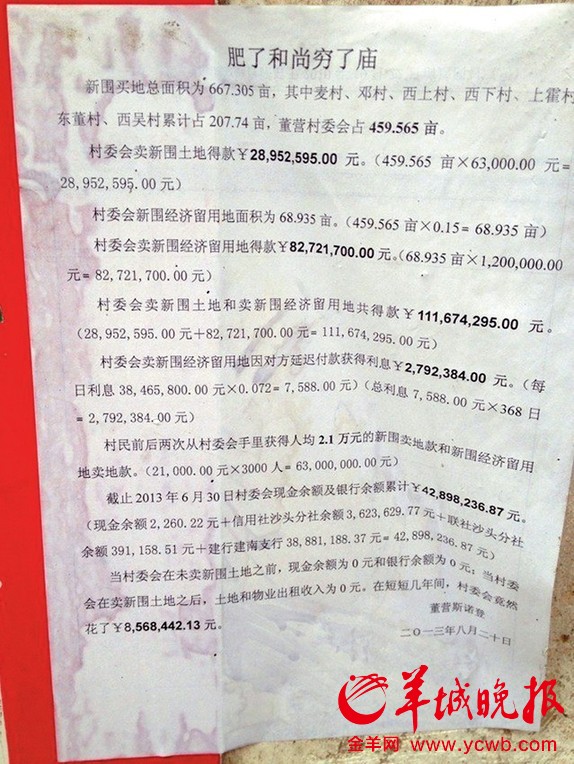 肥了和尚穷了庙
新围买地总面积为667.305亩，其中麦村、邓村、西上村、西下村、上霍村
东董村、西吴村累计占207.74亩，董营村委会占459.565亩。
村委会卖新围土地得款￥28,952,595.00元。（459.565亩×63,000.00元=
28,952,595.00元）
村委会新围经济留用地面积为68.935亩。（459.565亩×0.15=68.935亩）
村委会卖新围经济留用地得款￥82,721,700.00元。（68.935亩×1,200,000.00
元=82,721,700.00元）
村委会卖新围土地和卖新围经济留用地共得款￥111,674,295.00元。
（28,952,595.00元+82,721,700.00元=111,674,295.00元）
村委会卖新围经济留用地因对方延迟付款获得利息￥2,792,384.00元。（每
日利息38,465,800.00元×0.072=7,588.00元）（总利息7,588.00元×368日
=2,792,384.00元）
村民前后两次从村委会手里获得人均2.1万元的新围卖地款和新围经济留用
地卖地款。（21,000.00元×3000人=63,000,000.00元）
截止2013年6月30日村委会现金余额及银行余额累计￥42,898,236.87元。
（现金余额2,260.22元+信用社沙头分社余额3,623,629.77元+联社沙头分社
余额391,158.51元+建行建南支行38,881,188.37元=42,898,236.87元）
当村委会在未卖新围土地之前，现金余额为0元和银行余额为0元；当村委
会在卖新围土地之后，土地和物业出租收入为0元。在短短几年间，村委会竟然
花了￥8,568,442.13元。
董营斯诺登
二〇一三年八月二十日
羊城晚报
金羊网 www.ycwb.com